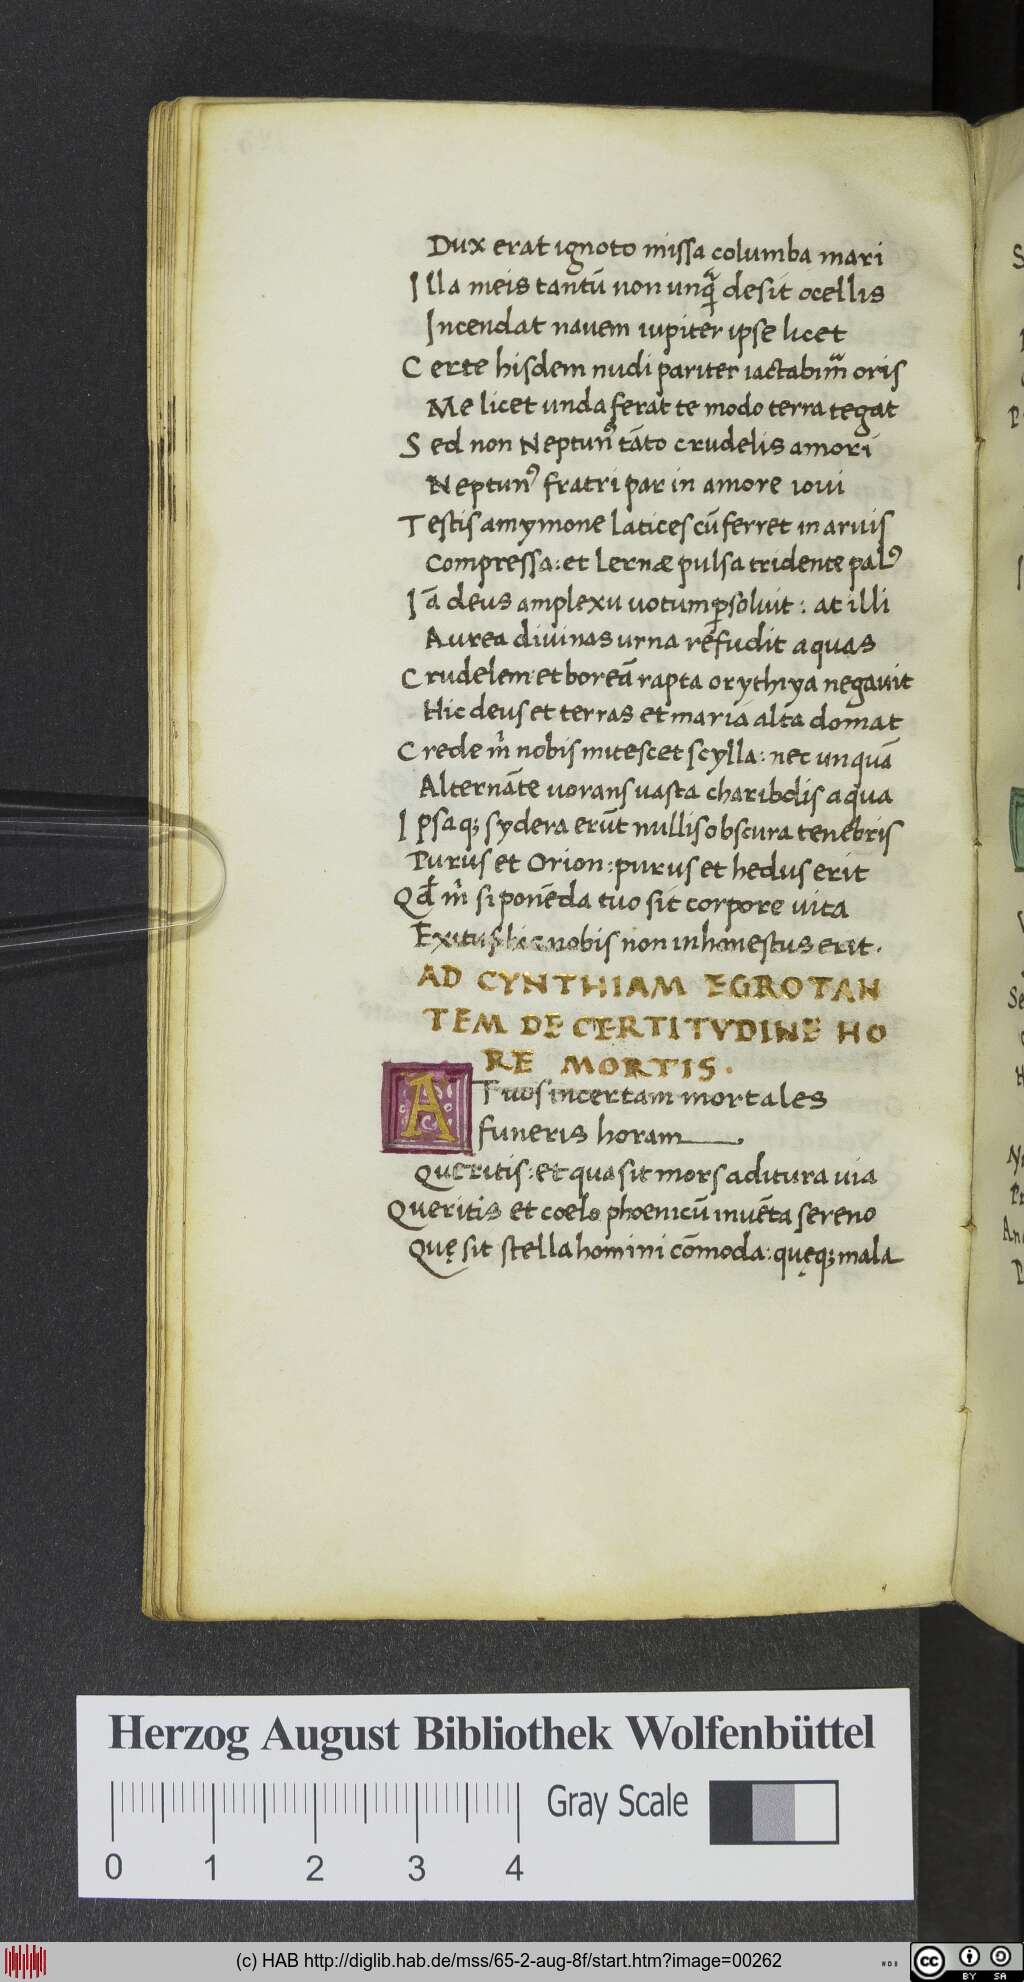 Dux erat ignoto missa columba mari
Illa meis tantū non unq̄ desit ocellis
Incendat nauem iupiter ipse licet
Certe hisdem nudi pariter iactabim᷒ oris
Me licet unda ferat te modo terra tegat
Sed non Neptun᷒ tāto crudelis amori
Neptun᷒ fratri par in amore ioui
Testis amymone latices cū ferret in aruis
Compressa: et Lernæ pulsa tridente pal᷒
Iā deus amplexu uotum ꝑsoluit: at illi
Aurea diuinas urna refudit aquas
Crudelem et boreā rapta orythiya negauit
Hic deus et terras et maria alta domat
Crede m̊ nobis mitescet scylla: nec unquā
Alternāte uorans uasta charibdis aqua
Ipsaq; sydera erūt nullis obscura tenebris
Purus et Orion: purus et hedus erit
Qd̄ m̊ si ponēda tuo sit corpore uita
Exitus hic nobis non inhonestus erit.
AD CYNTHIAM EGROTAN
TEM DE CERTITVDINE HO
RE MORTIS.
AT uos incertam mortales
funeris horam
Queritis: et qua sit mors aditura uia
Queritis et coelo phoenicū inuēta sereno
Quę sit stella homini cōmoda: quęq; mala
Herzog August Bibliothek Wolfenbüttel
Gray Scale
0 1 2 3 4
(c) HAB http://diglib.hab.de/mss/65-2-aug-8f/start.htm?image=00262
cc BY SA